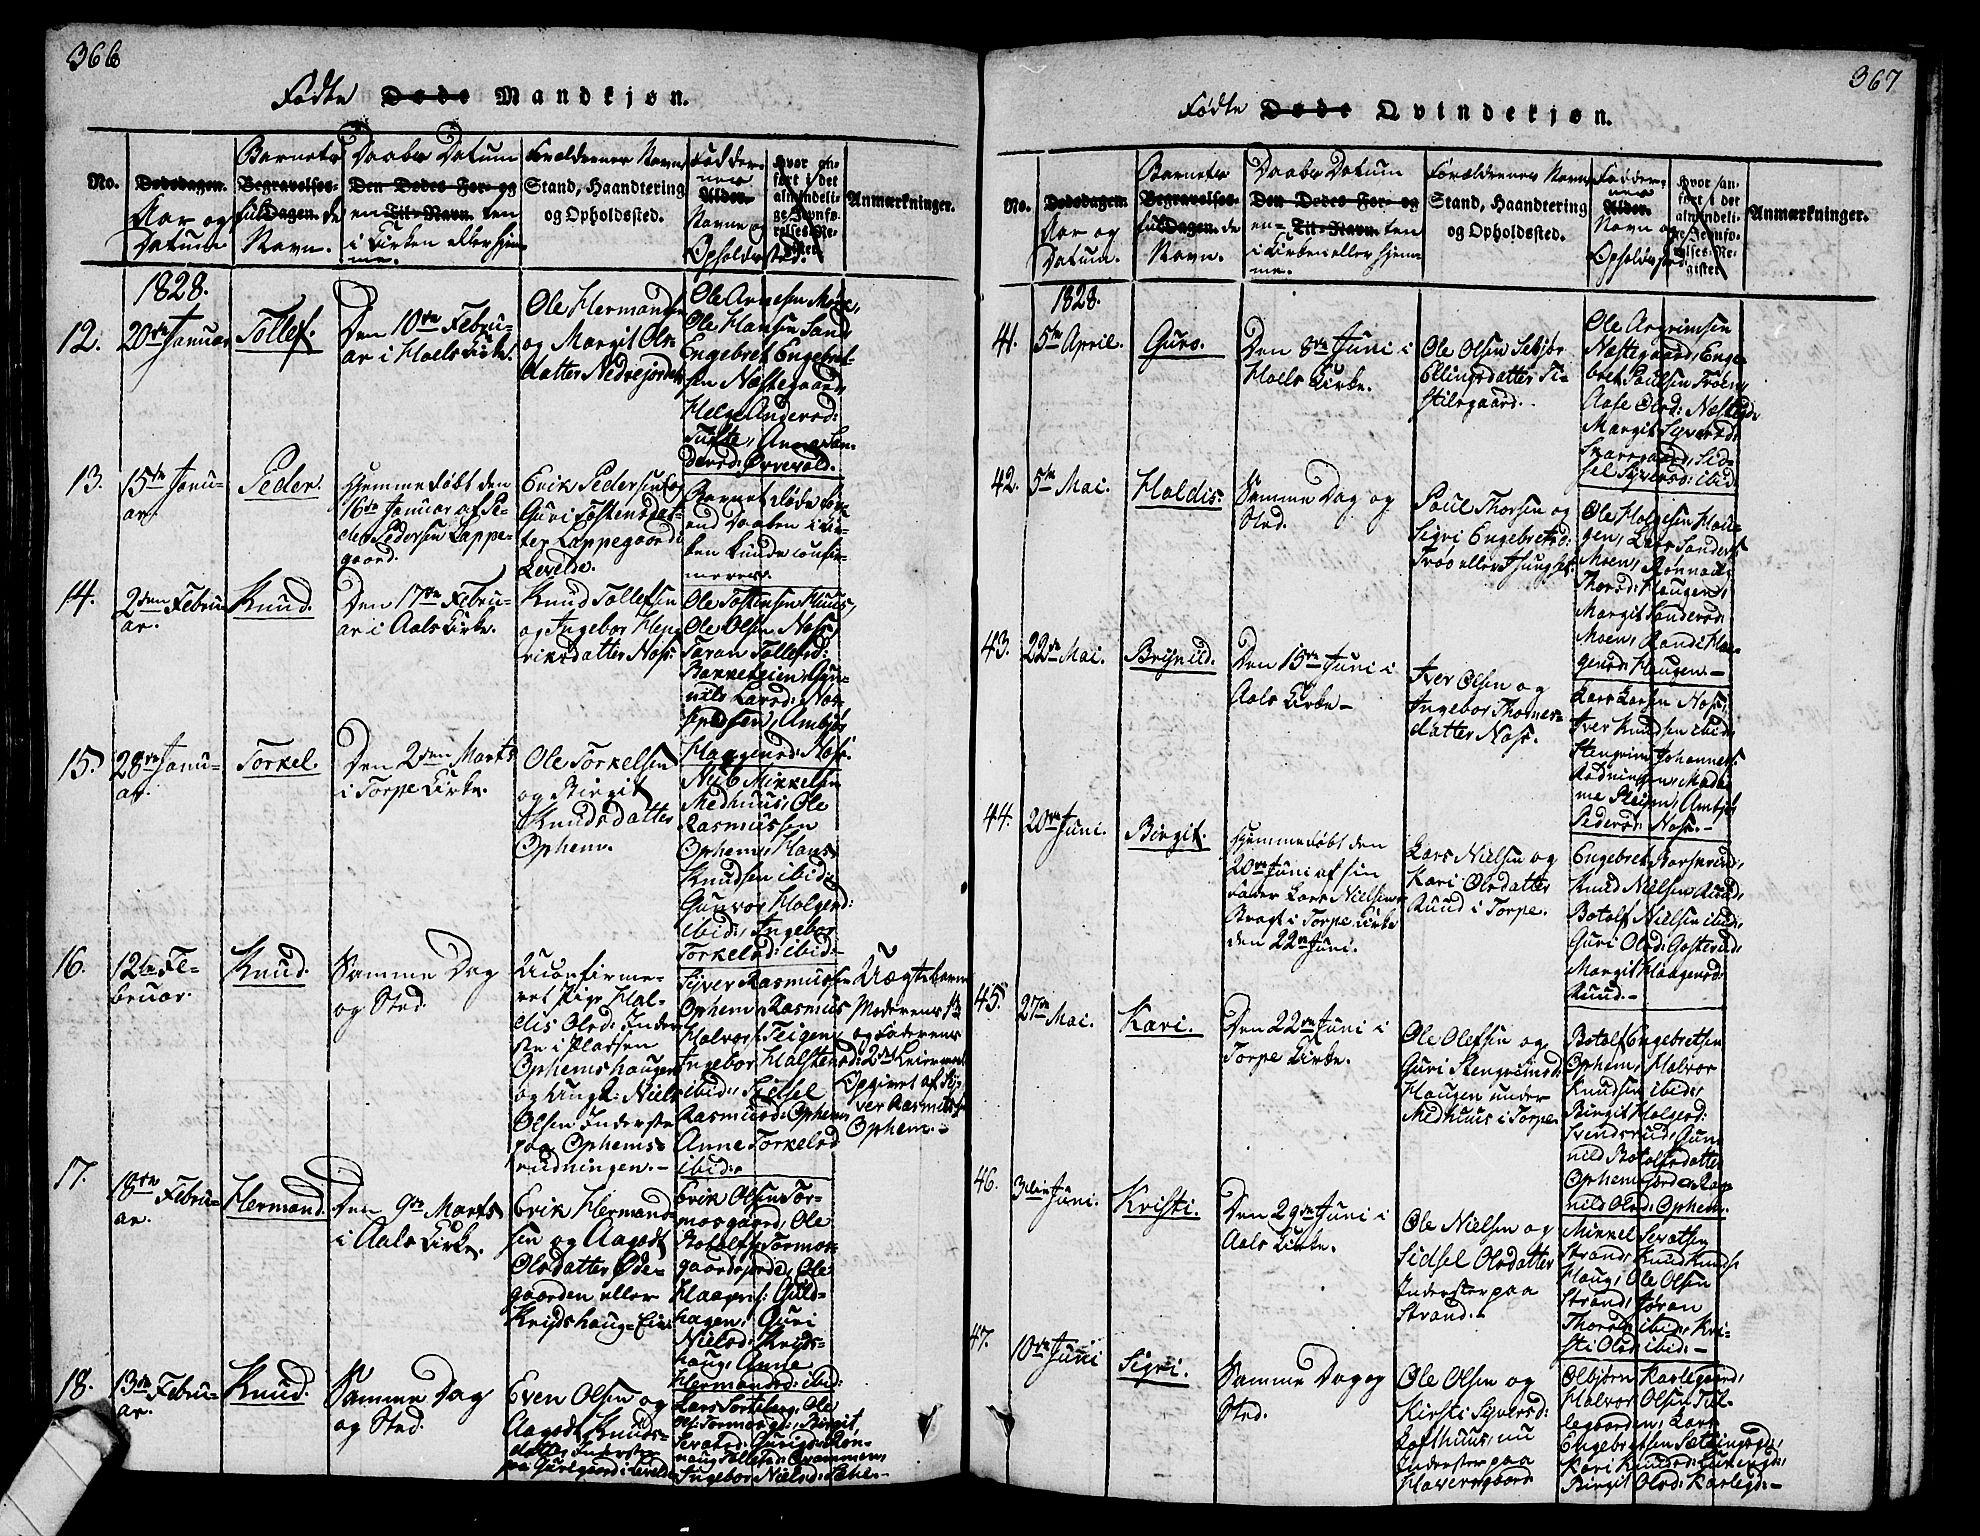 366
Födte Døde Mandkjøn.
No.
Dødsdagen.
Aar og
Datum
Barnets
Begravelses-
ful Dagen. de
Navn.
Daabs Datum
Den Dødes For- og
en Til-Navn. ten
i Kirken eller hjem-
me.
Forældrenes Navn
Stand, Haandtering
og Opholdssted.
Faddernes
Alder.
Navne og
Opholdssted.
Hvor an-
ført i det
almindeli-
ge Jevnfø-
relses-Re-
gister
Anmærkninger.
1828.
12.
20de Januar
Tollef.
Den 10de Febru-
ar i Hoels Kirke.
Ole Hermandsen
og Margit Ols-
datter Nedrejordet
Ole Hansen Sand
Engebret Engebret-
sen Næstegaard,
Helge Andersd:
Tufte, Anne San-
dersd: Øvrevold.
13.
15de Janu-
ar.
Peder.
Hjemmedøbt den
16de Januar af Pe-
der Pedersen Lappe-
gaard.
Erik Pedersen og
Guri Tostensdat-
ter Lappegaard i
Levelde.
Barnet døde for-
end Daaben i Kir-
ken kunde confir-
meres.
14.
2den Febru-
ar.
Knud.
Den 17de Febru-
ar i Aals Kirke.
Knud Tollefsen
og Ingebor Hen-
riksdatter Noss.
Ole Tostensen Huus,
Ole Olsen Noss,
Guran Tollefsd:
Bakketeien, Gu-
nild Larsd: Nos-
Haagensd: Noss.
15.
28de Janu-
ar.
Torkel.
Den 2den Marts
i Torpe Kirke.
Ole Torkelsen
og Birgit
Knudsdatter
Ophem.
Nils Mikkelsen
Medhuus, Ole
Rasmussen
Ophem, Hans
Knudsen ibid:
Gunvor Holgersd:
ibid:, Ingebor
Torkelsd: ibid:
16.
12te Fe-
bruar.
Knud.
Samme Dag
og Sted.
Uconfirme-
ret Pige Hal-
dis Olsd: Inder-
ste i Pladsen
Ophemshaugen
og Ungk: Niels
Olsen Inderste
paa Ophems-
rudningen.
Syver Rasmussen
Ophem, Rasmus
Halvors: Teigen,
Ingebor Halstensd:
ibid:, Sidsel
Rasmusd: Ophem,
Anne Torkelsd
ibid:
Uægte barn
Moderens 1ste
og Faderens
2det Leiermaal
Opgivet af Sy-
ver Rasmusse
Ophem.
17.
18de Febru-
ar.
Hermand.
Den 9de Marts
i Aals Kirke.
Erik Hermand-
sen og Aagodt
Olsdatter Øde-
gaarden eller
Krydshaug-Eie
Erik Olsen Tor-
mosgaard, Ole
Botolfs: Tormos-
gaardsjorde, Ole
Haagens: Guld-
hagen, Guri
Nielsd: Kryds-
haug, Anne
Hermandsd: ibid:
18.
13de Febru-
ar.
Knud.
Samme Dag
og Sted.
Even Olsen og
Aagodt Knuds-
datter Inderster
367
Födte Døde Qvindekjøn.
No.
Dødsdagen.
Aar og
Datum.
Barnets
Begravelses-
ful Dagen. de
Navn.
Daabs Datum
Den Dødes For- og
en- Til-Navn. ten
i Kirken eller hjem-
me.
Forældrenes Navn
Stand, Haandtering
og Opholdssted.
Fadder-
nes
Alder.
Navn og
Opholdssted
Hvor an-
ført i det
almindeli-
ge Jevnfø-
relses-Re-
gister
Anmærkninger.
1828.
41.
5te April.
Guro.
Den 8de Juni i
Hoels Kirke.
Ole Olsen Sebjør
Ellingsdatter Ti-
stilegaard.
Ole Asgrimsen
Næstegaard, Enge-
bret Paulsen Trøen,
Aase Olsd: Næstegd:
Margit Syversd:
Skarsgaard, Sid-
sel Syversd: ibid
42.
5te Mai.
Holdis.
Samme Dag og
Sted.
Paul Thorsen og
Sigri Engebretsd:
Ole Holgesen Hau-
gen, Lars Sanders:
Moen, Rønnaug
Thorsd: Haugen,
Margit Sandersd:
Moen, Randi Hol-
gersd: Haugen.
43.
22de Mai.
Brynild.
Den 15de Juni i
Aals Kirke
Iver Olsen og
Ingebor Thores-
datter Noss.
Lars Larsen Noss,
Iver Knudsen ibid:
Stengrim Johanness:
Rødningen, Mada-
me Stein, Ambjør
Pedersd: Noss.
44.
20de Juni.
Birgit.
Hjemmedøbt den
20de Juni af sin
Fader Lars Nielsen.
Bragt i Torpe Kirke
den 22de Juni.
Lars Nielsen og
Kari Olsdatter
Ruud i Torpe.
Engebret Borserud,
Knud Nielsen Ruud,
Botolf Nielsen ibid:,
Guri Olsd: Golterud,
Margit Haagensd:
Ruud.
45.
27de Mai.
Kari.
Den 22de Juni i
Torpe Kirke.
Ole Olefsen og
Guri Stengrimsd:
Haugen under
Medhuus i Torpe
Botolf Engebretsen
Ophem, Halvor
Knudsen ibid:,
Birgit Holgersd:
Svendsrud, Gun-
nild Botolfsdatter
nild Olsd: Ophem.
46.
3die Juni.
Kristi.
Den 29de Juni i
Aals Kirke.
Ole Nielsen og
Sidsel Olsdatter
Inderster paa
Strand.
Mikkel Serætsen
Strand, Knud Knuds:
Haug, Ole Olsen
Strand, Jøran
Thorsd: ibid:, Kri-
sti Olsd: ibid:
47.
10de Juni
Sigri.
Samme Dag og
Sted.
Ole Olsen og
Kirsti Syversd:
Lofthuus, nu
Inderster paa
Haversgaard
Asbjørn Karlegaard,
Halvor Olsen Tul-
legaarden, Lars
Engebretsen Sætningsgd:,
Birgit Olsd: Karlegd: